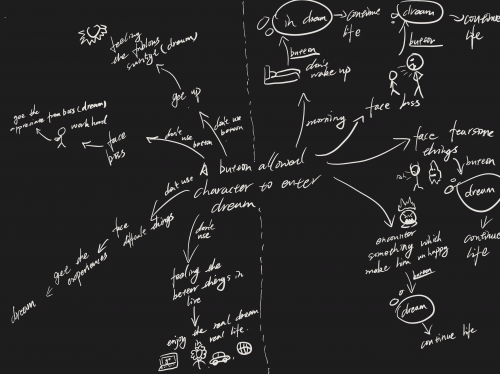 A button allowed
character to enter
dream
don't use
button
get up
feeling
the fabulous
sunlight (dream)
don't use
button
face
boss
work hard
get the
appreciate from boss (dream)
don't use
face
difficult things
get the
experiences
dream
don't
use
feeling the
better things in
live
enjoy the real dream
real life.
morning
don't
wake up
button
in dream
continue
life
face boss
button
dream
continue
life
face fearsome
things
button
dream
continue
life
encounter
something which
make him unhappy
button
dream
continue life